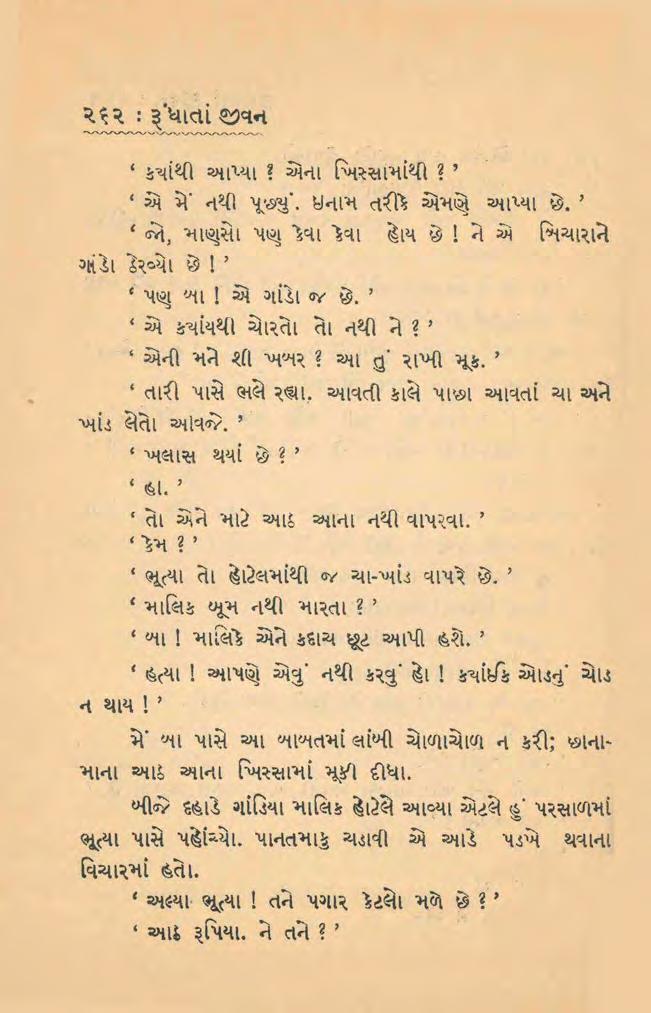 ૨૬૨ : રૂંધાતાં જીવન
‘ કયાંથી આપ્યા ? એના ખિસ્સામાંથી ? ’
‘ એ મેં નથી પૂછ્યું. ઇનામ તરીકે એમણે આપ્યા છે. ’
‘ જો, માણસો પણ કેવા કેવા હોય છે ! ને એ બિચારાને
ગાંડો ઠેરવ્યો છે ! ’
‘ પણ બા ! એ ગાંડો જ છે. ’
‘ એ કયાંયથી ચોરતો તો નથી ને ? ’
‘ એની મને શી ખબર ? આ તું રાખી મૂક. ’
‘ તારી પાસે ભલે રહ્યા. આવતી કાલે પાછા આવતાં ચા અને
ખાંડ લેતો આવજે. ’
‘ ખલાસ થયાં છે ? ’
‘ હા. ’
‘ તો એને માટે આઠ આના નથી વાપરવા. ’
‘ કેમ ? ’
‘ ભૂત્યા તો હોટેલમાંથી જ ચા-ખાંડ વાપરે છે. ’
‘ માલિક બૂમ નથી મારતા ? ’
‘ બા ! માલિકે એને કદાચ છૂટ આપી હશે. ’
‘ હત્યા ! આપણે એવું નથી કરવું હો ! કયાંઈક ઓડનું ચોડ
ન થાય ! ’
મેં બા પાસે આ બાબતમાં લાંબી ચોળાચોળ ન કરી; છાના-
માના આઠ આના ખિસ્સામાં મૂકી દીધા.
બીજે દહાડે ગાંડિયા માલિક હોટેલે આવ્યા એટલે હું પરસાળમાં
ભૂત્યા પાસે પહોંચ્યો. પાનતમાકુ ચડાવી એ આડે પડખે થવાના
વિચારમાં હતો.
‘ અલ્યા ભૂત્યા ! તને પગાર કેટલો મળે છે ? ’
‘ આઠ રૂપિયા. ને તને ? ’